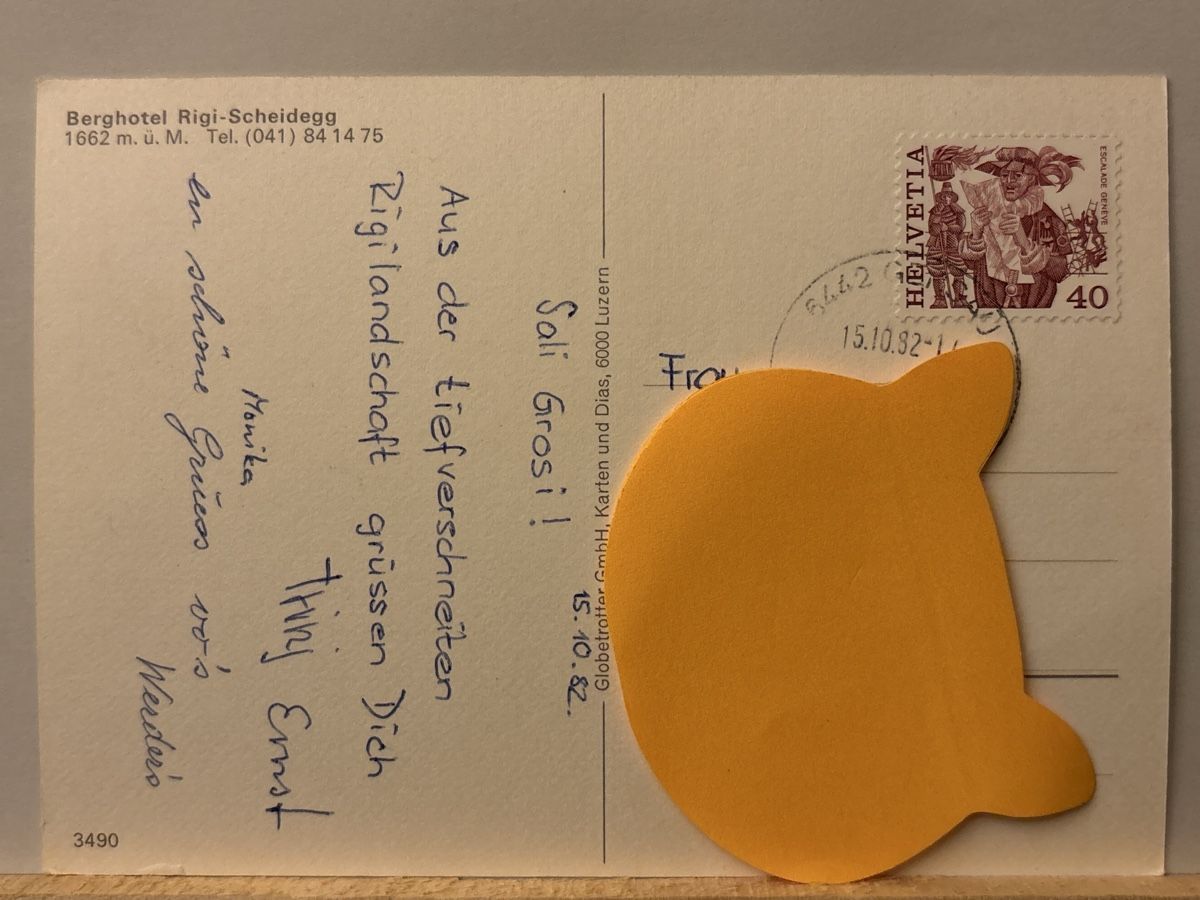 Berghotel Rigi-Scheidegg
1662 m. ü. M. Tel. (041) 84 14 75
15.10.82.
Sali Grosi!
Aus der tiefverschneiten
Rigilandschaft grüssen Dich
Ernst
Monika
en schöne Gruess vo's
Werder's
3490
Globetrotter GmbH, Karten und Dias, 6000 Luzern
HELVETIA
ESCALADE GENÈVE
40
6442
15.10.82-
Frau